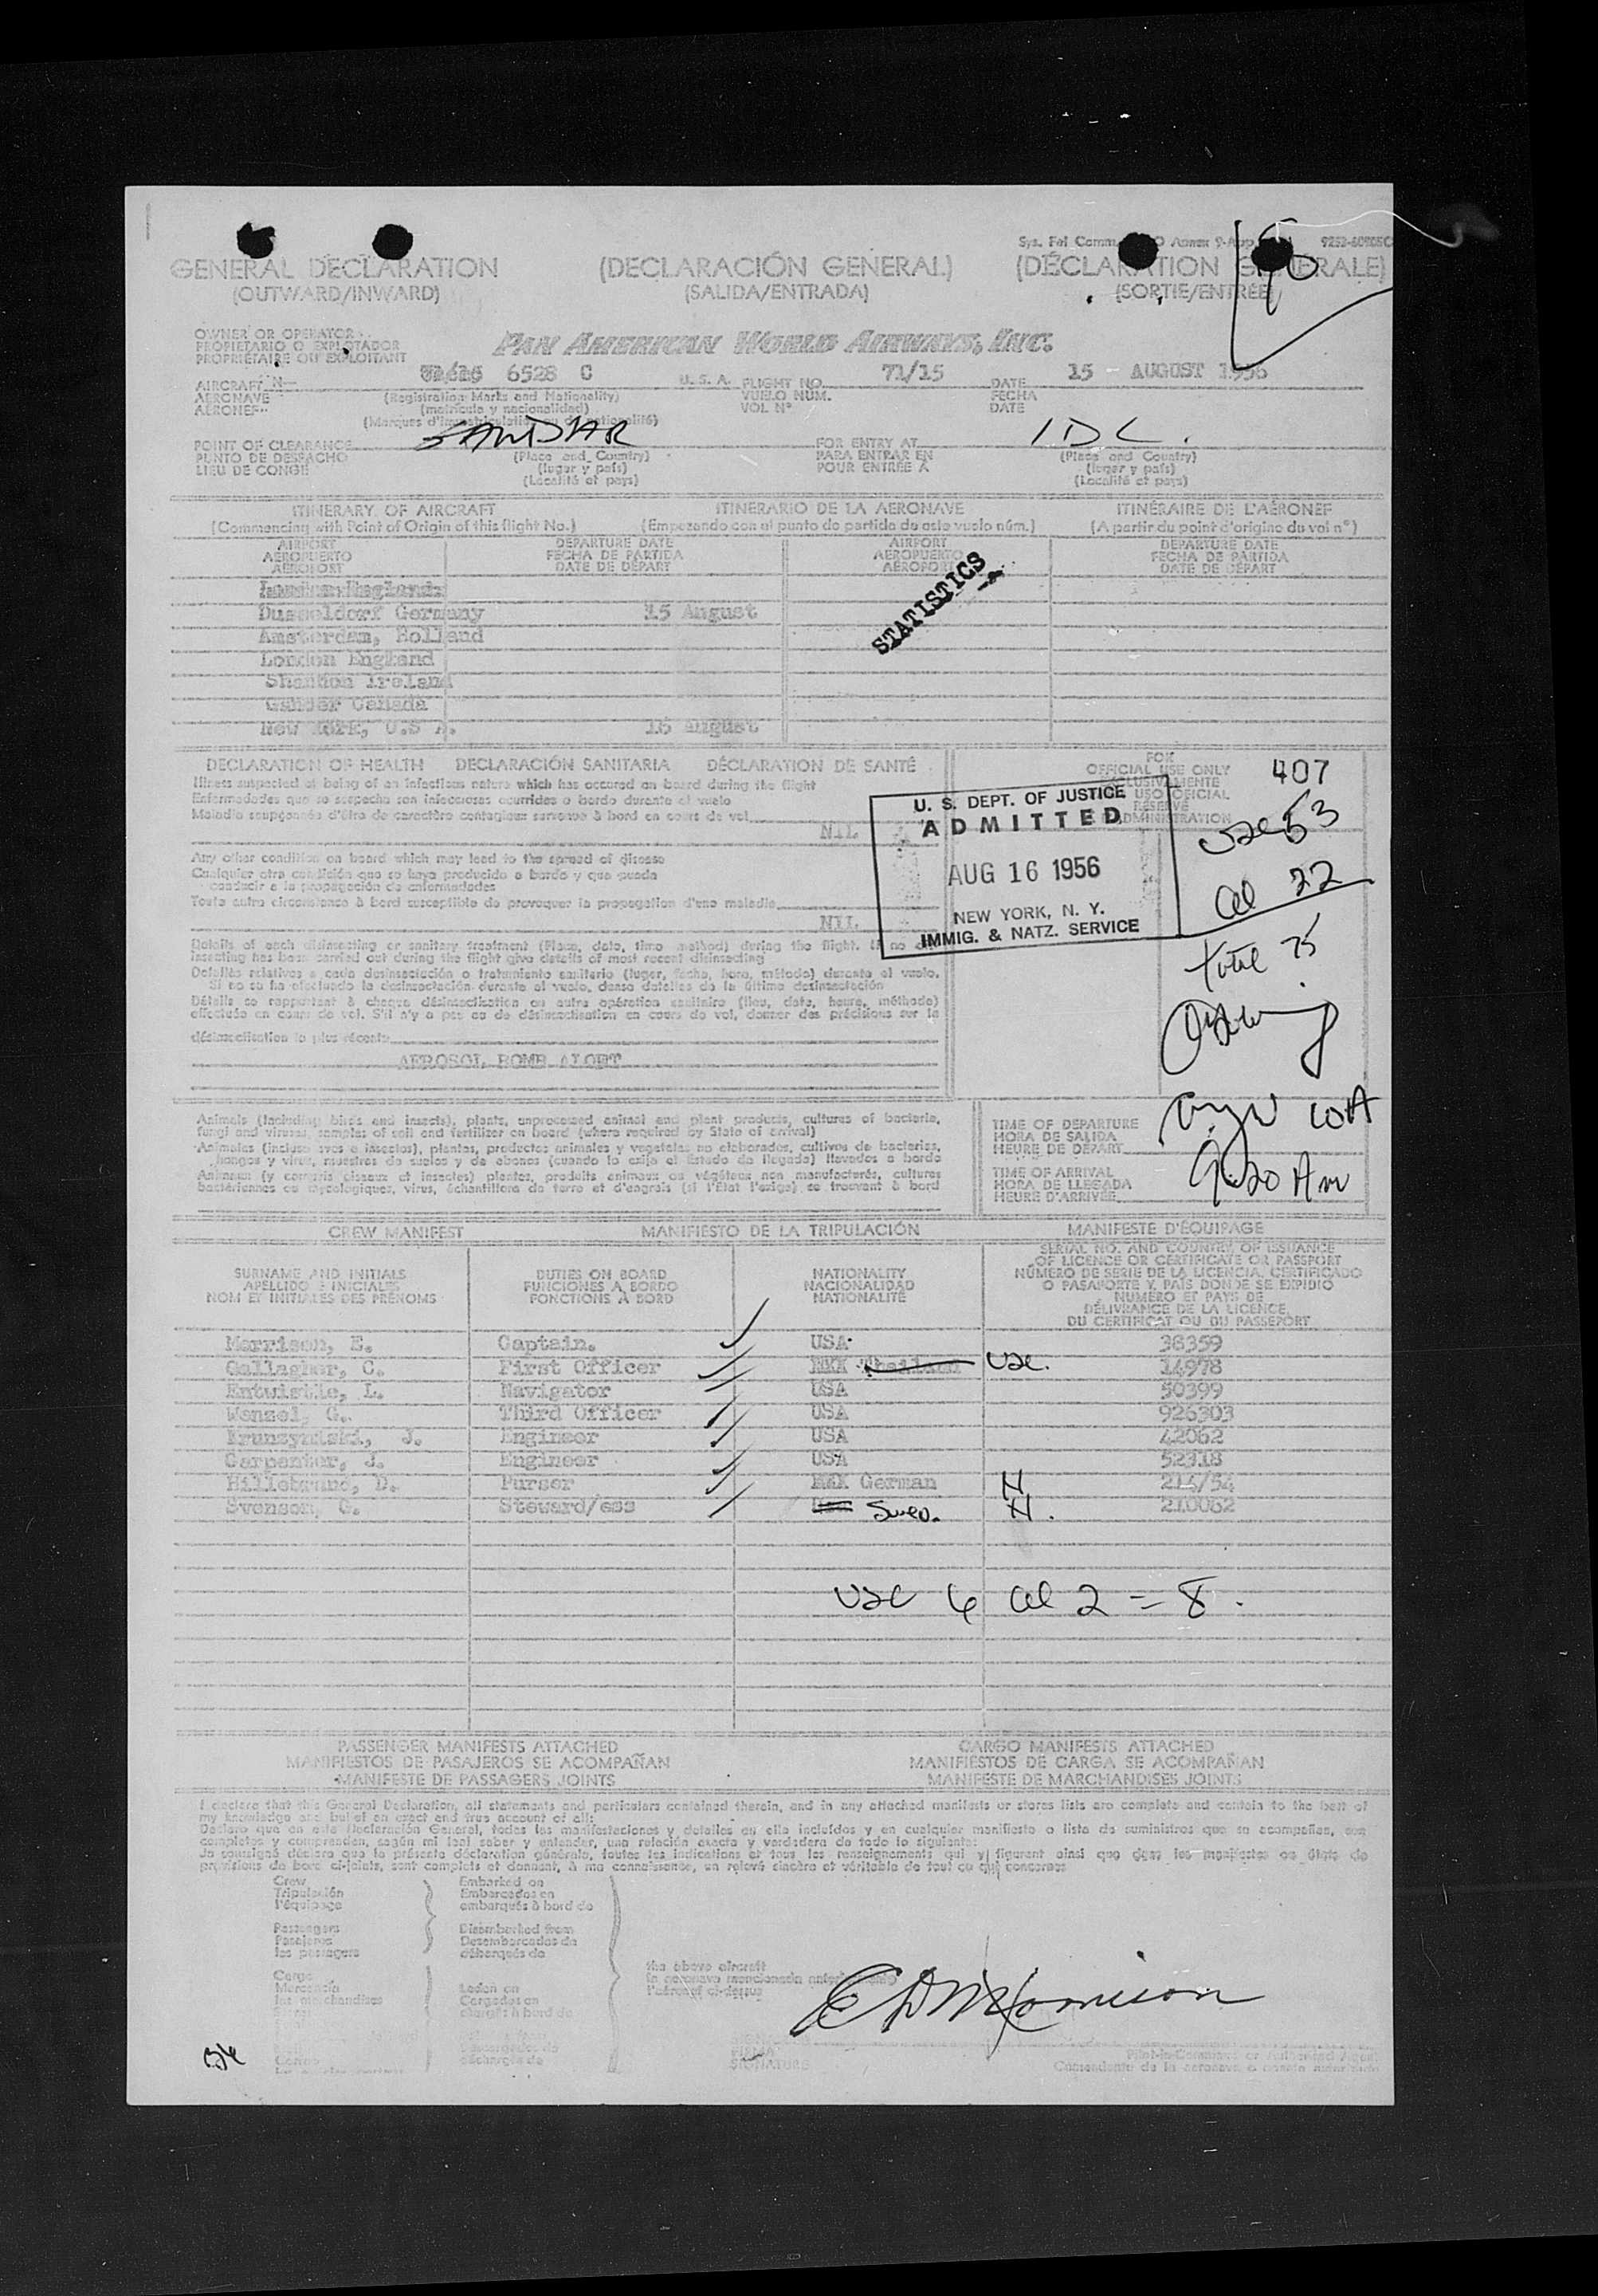 9252-60505C
GENERAL DECLARATION (DECLARACIÓN GENERAL) (DÉCLARATION GÉNÉRALE)
(OUTWARD/INWARD) (SALIDA/ENTRADA) (SORTIE/ENTRÉE)
OWNER OR OPERATOR
PROPIETARIO O EXPLOTADOR
PROPRIÉTAIRE OU EXPLOITANT
PAN AMERICAN WORLD AIRWAYS, INC.
AIRCRAFT N— 6528 C U.S.A. FLIGHT NO. 71/15 DATE 15 AUGUST 1956
AERONAVE (Registration Marks and Nationality) VUELO NÚM. FECHA
AÉRONEF (matrícula y nacionalidad) VOL Nº DATE
POINT OF CLEARANCE FOR ENTRY AT IDL.
PUNTO DE DESPACHO (Place and Country) PARA ENTRAR EN (Place and Country)
LIEU DE CONGÉ (lugar y país) POUR ENTRÉE À (lugar y país)
(Localité et pays) (Localité et pays)
ITINERARY OF AIRCRAFT ITINERARIO DE LA AERONAVE ITINÉRAIRE DE L'AÉRONEF
(Commencing with Point of Origin of this flight No.) (Empezando con el punto de partida de este vuelo núm.) (A partir du point d'origine du vol nº)
AIRPORT DEPARTURE DATE AIRPORT DEPARTURE DATE
AEROPUERTO FECHA DE PARTIDA AEROPUERTO FECHA DE PARTIDA
AÉROPORT DATE DE DÉPART AÉROPORT DATE DE DÉPART
STATISTICS
Dusseldorf Germany 15 August
Amsterdam, Holland
London England
Shannon Ireland
Gander Canada
New York, U.S A. 16 august
DECLARATION OF HEALTH DECLARACIÓN SANITARIA DÉCLARATION DE SANTÉ
Illness suspected of being of an infectious nature which has occured on board during the flight
Enfermedades que se sospecha son infecciosas ocurridas a bordo durante el vuelo
Maladie soupçonnée d'être de caractère contagieux survenue à bord en cours de vol
NIL
Any other condition on board which may lead to the spread of disease
Cualquier otra condición que se haya producido a bordo y que pueda
conducir a la propagación de enfermedades
Toute autre circonstance à bord susceptible de provoquer la propagation d'une maladie
NIL
FOR
OFFICIAL USE ONLY
407
U. S. DEPT. OF JUSTICE
ADMITTED
AUG 16 1956
NEW YORK, N. Y.
IMMIG. & NATZ. SERVICE
usc 53
al 22
total 75
Details of each disinsecting or sanitary treatment (Place, date, time method) during the flight. If no
insecting has been carried out during the flight give details of most recent disinsecting
Detalles relativos a cada desinsectación o tratamiento sanitario (lugar, fecha, hora, método) durante el vuelo.
Si no se ha efectuado la desinsectación durante el vuelo, dense detalles de la última desinsectación
Détails se rapportant à chaque désinsectisation ou autre opération sanitaire (lieu, date, heure, méthode)
effectuée en cours de vol. S'il n'y a pas eu de désinsectisation en cours de vol, donner des précisions sur la
désinsectisation la plus récente
AEROSOL BOMB ALOFT
Animals (including birds and insects), plants, unprocessed animal and plant products, cultures of bacteria,
fungi and viruses, samples of soil and fertilizer on board (where required by State of arrival)
Animales (incluso aves e insectos), plantas, productos animales y vegetales no elaborados, cultivos de bacterias,
hongos y virus, muestras de suelos y de abonos (cuando lo exija el Estado de llegada) llevados a bordo
Animaux (y compris oiseaux et insectes) plantes, produits animaux ou végétaux non manufacturés, cultures
bactériennes ou mycologiques, virus, échantillons de terre et d'engrais (si l'État l'exige) se trouvant à bord
TIME OF DEPARTURE
HORA DE SALIDA
HEURE DE DÉPART
TIME OF ARRIVAL
HORA DE LLEGADA
HEURE D'ARRIVÉE
CREW MANIFEST MANIFIESTO DE LA TRIPULACIÓN MANIFESTE D'ÉQUIPAGE
SURNAME AND INITIALS DUTIES ON BOARD NATIONALITY
APELLIDO E INICIALES FUNCIONES A BORDO NACIONALIDAD
NOM ET INITIALES DES PRÉNOMS FONCTIONS À BORD NATIONALITÉ
SERIAL NO. AND COUNTRY OF ISSUANCE
OF LICENCE OR CERTIFICATE OR PASSPORT
NÚMERO DE SERIE DE LA LICENCIA, CERTIFICADO
O PASAPORTE Y PAÍS DONDE SE EXPIDIÓ
NUMÉRO ET PAYS DE
DÉLIVRANCE DE LA LICENCE,
DU CERTIFICAT OU DU PASSEPORT
Morrison, E. Captain. USA 38359
Gallagher, C. First Officer Thailand usc. 14978
Entwistle, L. Navigator USA 50399
Wenzel, G. Third Officer USA 926303
J. Engineer USA 42062
Carpenter, J. Engineer USA 52318
Hillebrand, D. Purser German H 214/54
Svenson, G. Steward/ess Swed. H. 210062
usc 6 al 2 = 8.
PASSENGER MANIFESTS ATTACHED CARGO MANIFESTS ATTACHED
MANIFIESTOS DE PASAJEROS SE ACOMPAÑAN MANIFIESTOS DE CARGA SE ACOMPAÑAN
MANIFESTE DE PASSAGERS JOINTS MANIFESTE DE MARCHANDISES JOINTS
I declare that this General Declaration, all statements and particulars contained therein, and in any attached manifests or stores lists are complete and contain to the best of
my knowledge and belief an exact and true account of all:
Declaro que en esta Declaración General, todas las manifestaciones y detalles en ella incluidos y en cualquier manifiesto o lista de suministros que se acompañan, son
completos y comprenden, según mi leal saber y entender, una relación exacta y verdadera de todo lo siguiente:
Je soussigné déclare que la présente déclaration générale, toutes les indications et tous les renseignements qui y figurent ainsi que dans les manifestes ou états de
provisions de bord ci-joints, sont complets et donnent, à ma connaissance, un relevé sincère et véritable de tout ce qui concerne:
Crew Embarked on
Tripulación Embarcados en
l'équipage embarqués à bord de
Passengers Disembarked from
Pasajeros Desembarcados de
les passagers débarqués de
Cargo Laden on
Mercancía Cargados en
les marchandises chargés à bord de
the above aircraft
l'aéronef ci-dessus
SIGNATURE